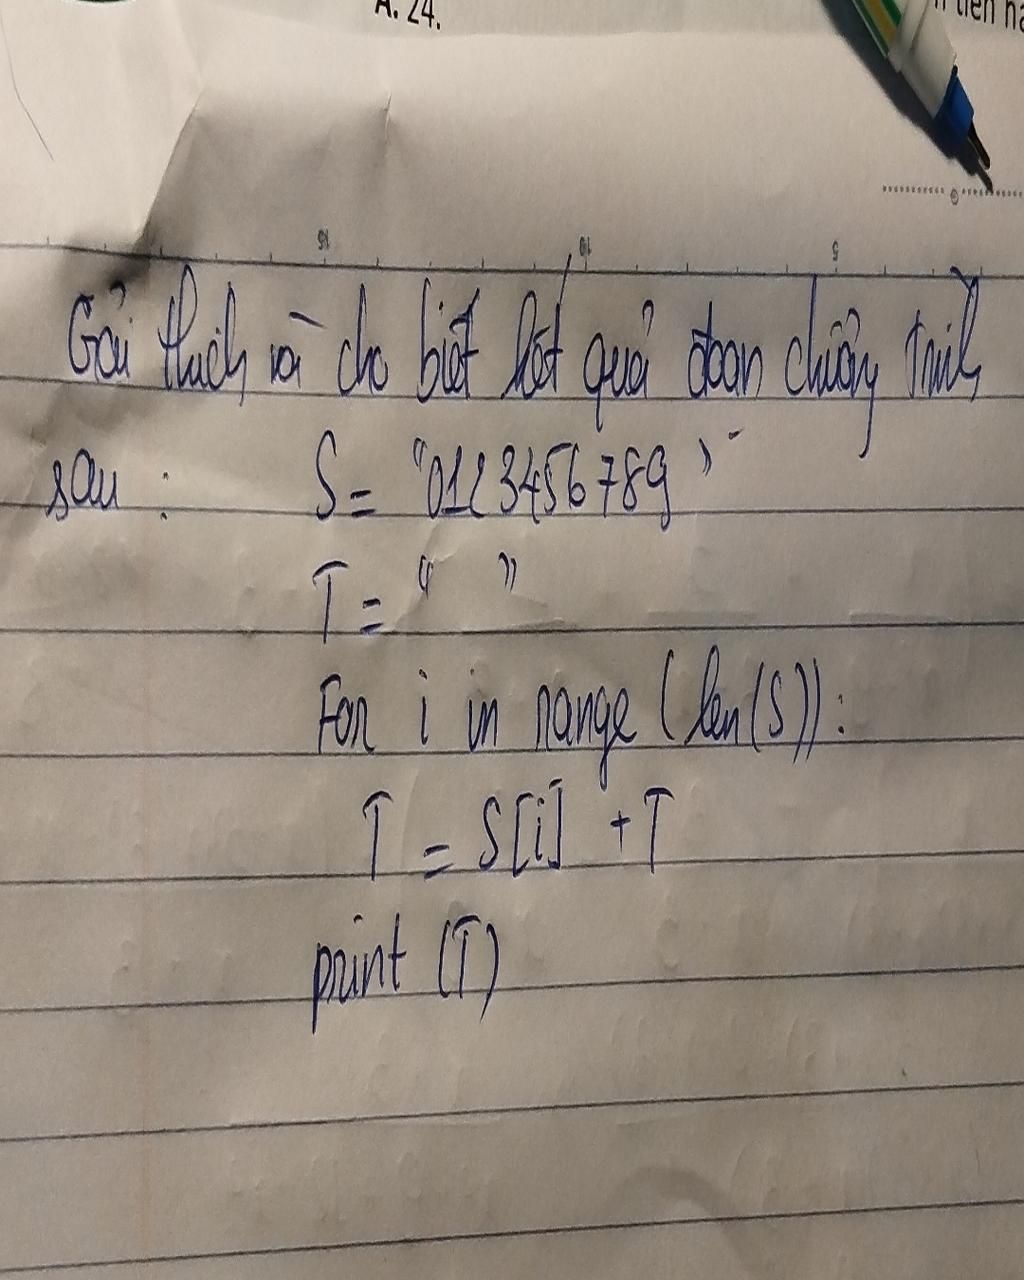 A. 24.
n tiến hà
15 10 5
Gải thích và cho biết kết quả đoạn chương trình
sau : S = "0123456789"
T = " "
For i in range (len(S)):
T = S[i] + T
print (T)